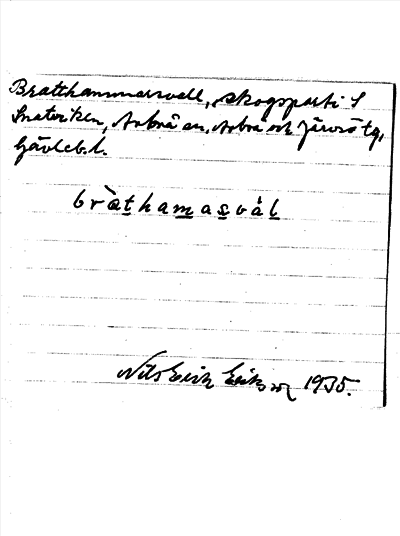 Bratthammarsvall, skogsparti i
Snateriken, Arbrå sn, Arbrå och Järvsö tg,
Gävleb. l.
bràthamasvål
Nils Erik Eriksson 1935.